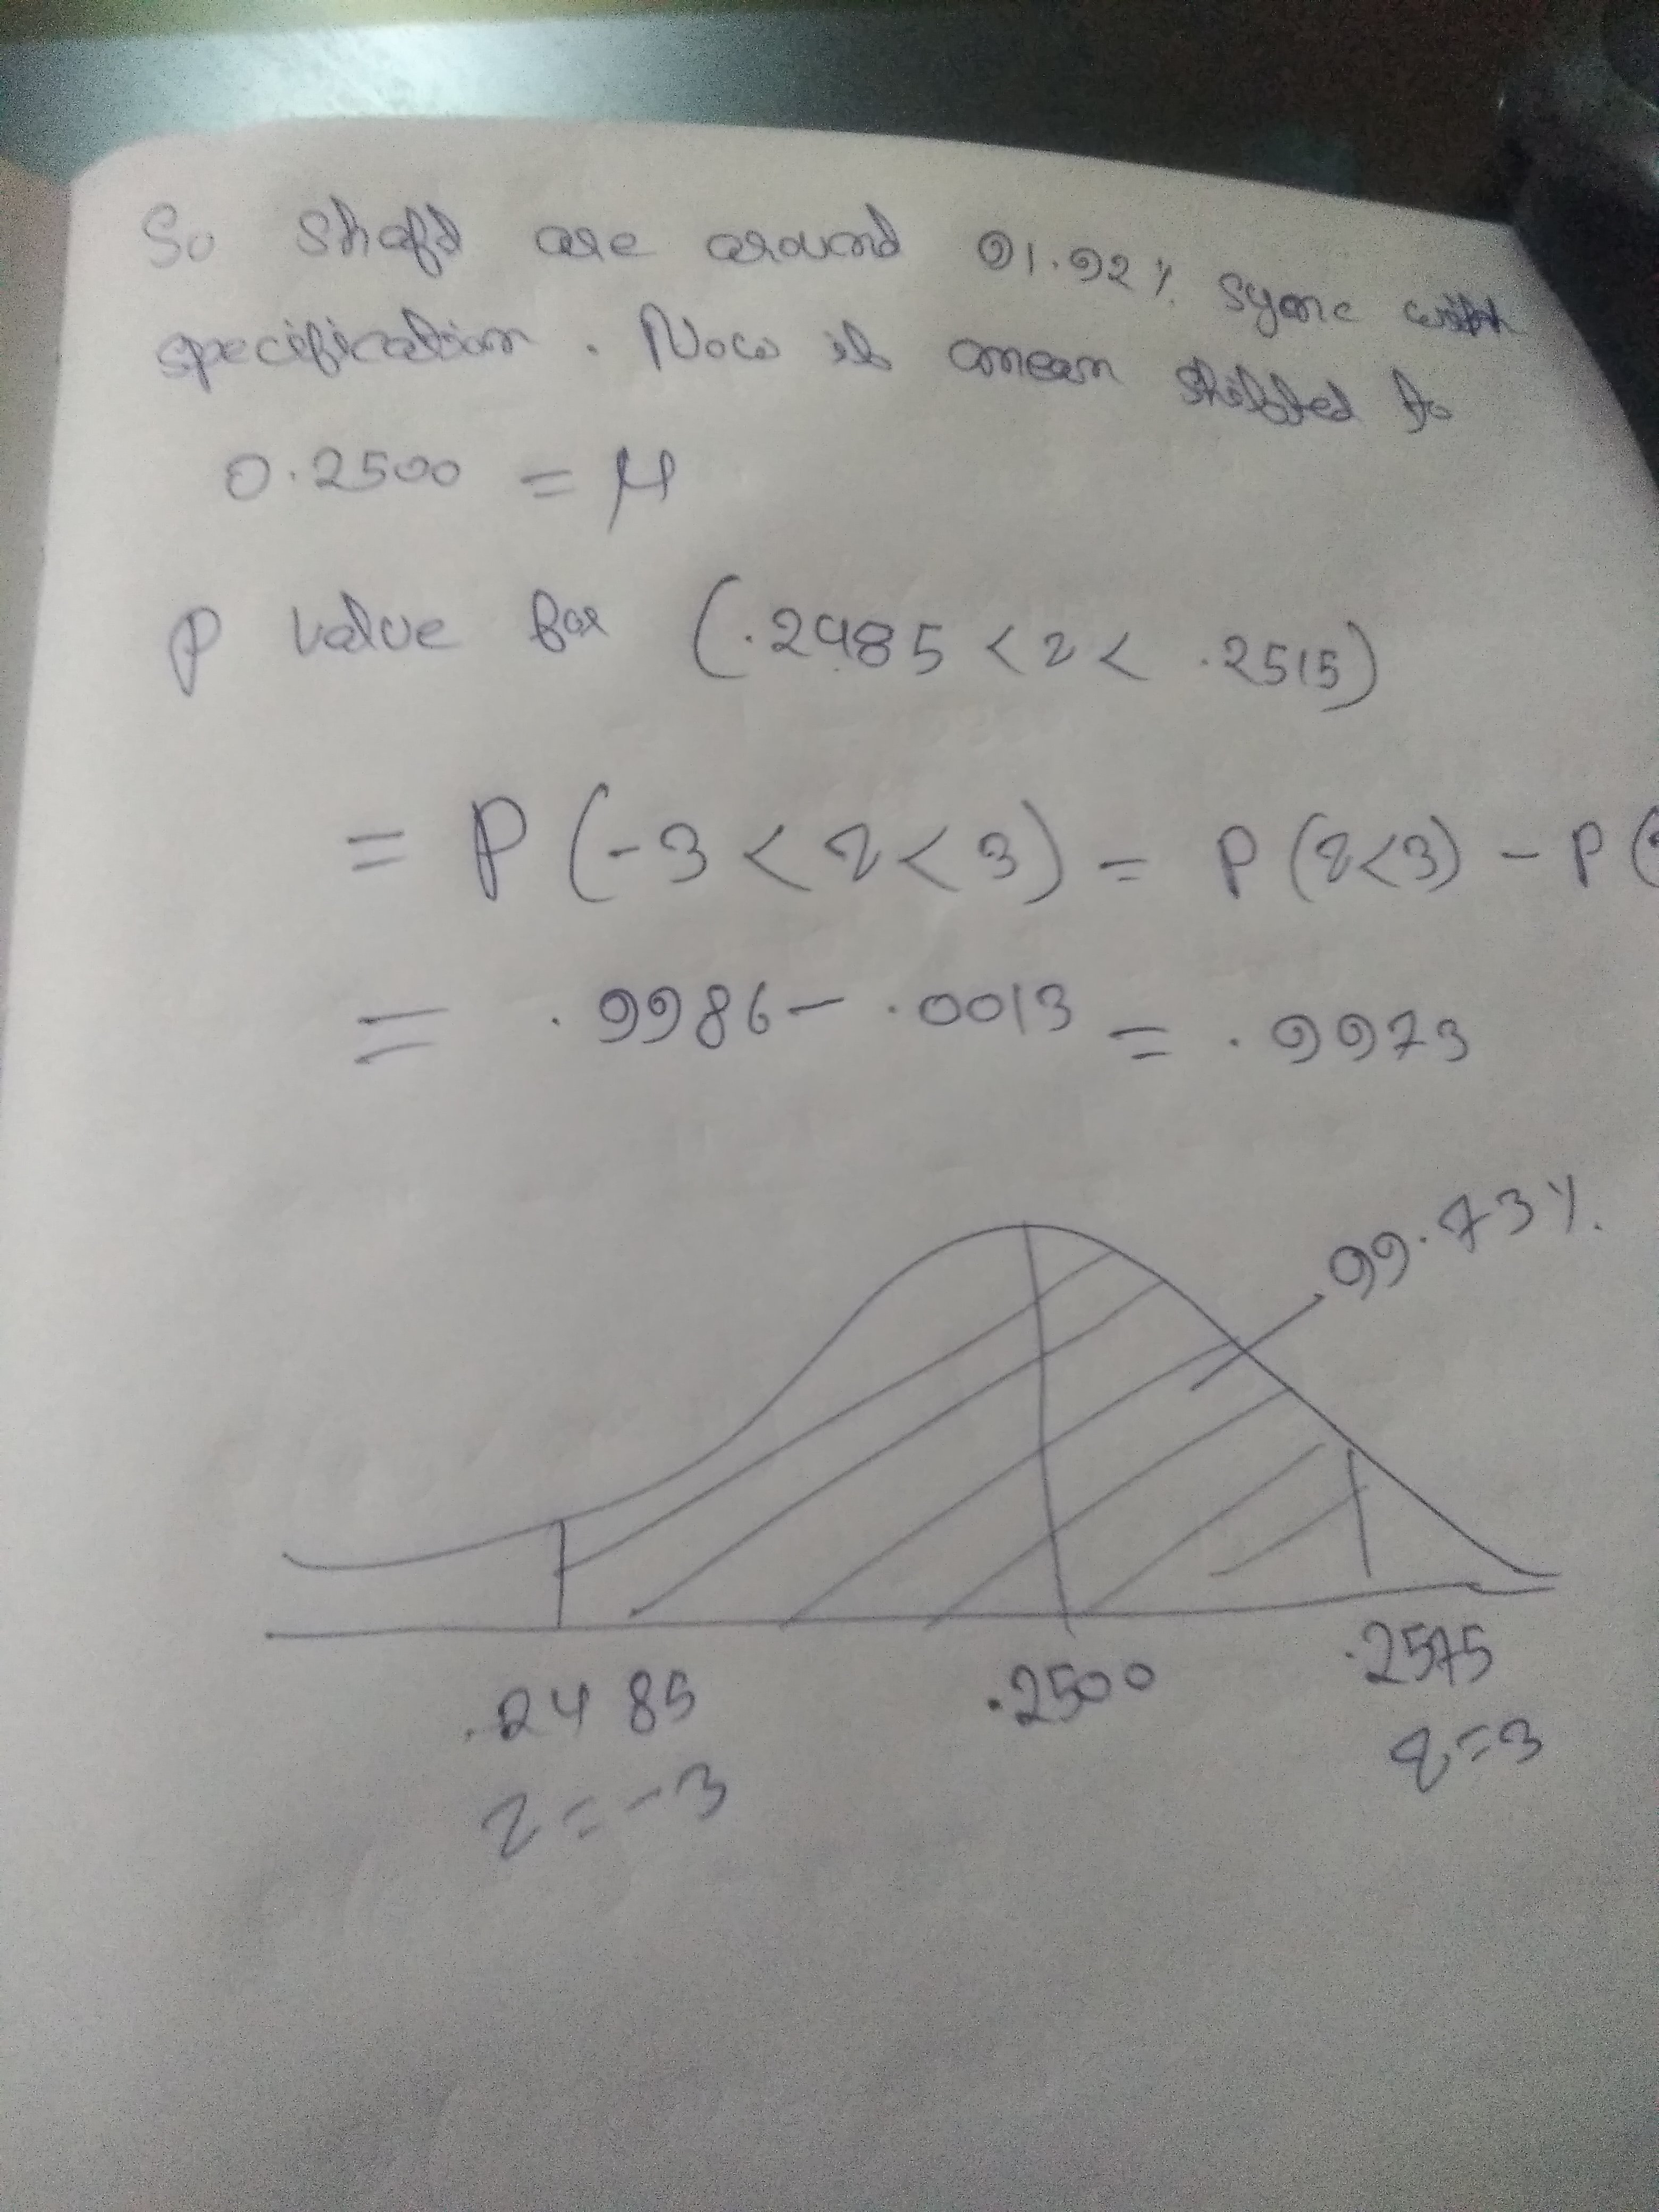 So shaft are around 91.92% sync with
specification. Now if mean shifted to
0.2500 = μ
P value for (.2485 < z < .2515)
= P(-3 < z < 3) = P(z<3) - P(
= .9986 - .0013 = .9973
99.73%
.2485 .2500 .2575
z = -3 z = 3